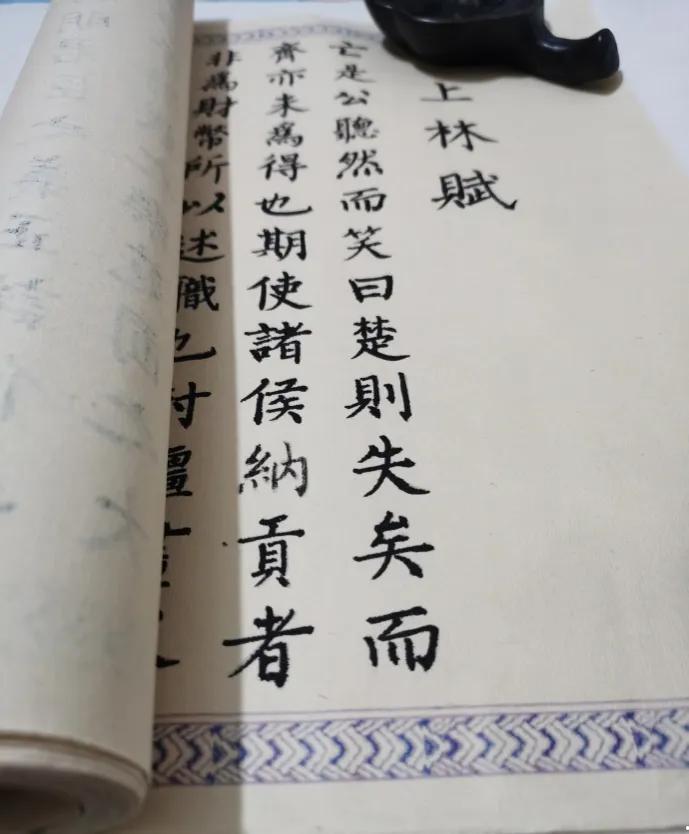 上林賦
亡是公聽然而笑曰楚則失矣而
齊亦未爲得也期使諸侯納貢者
非爲財幣所以述職也